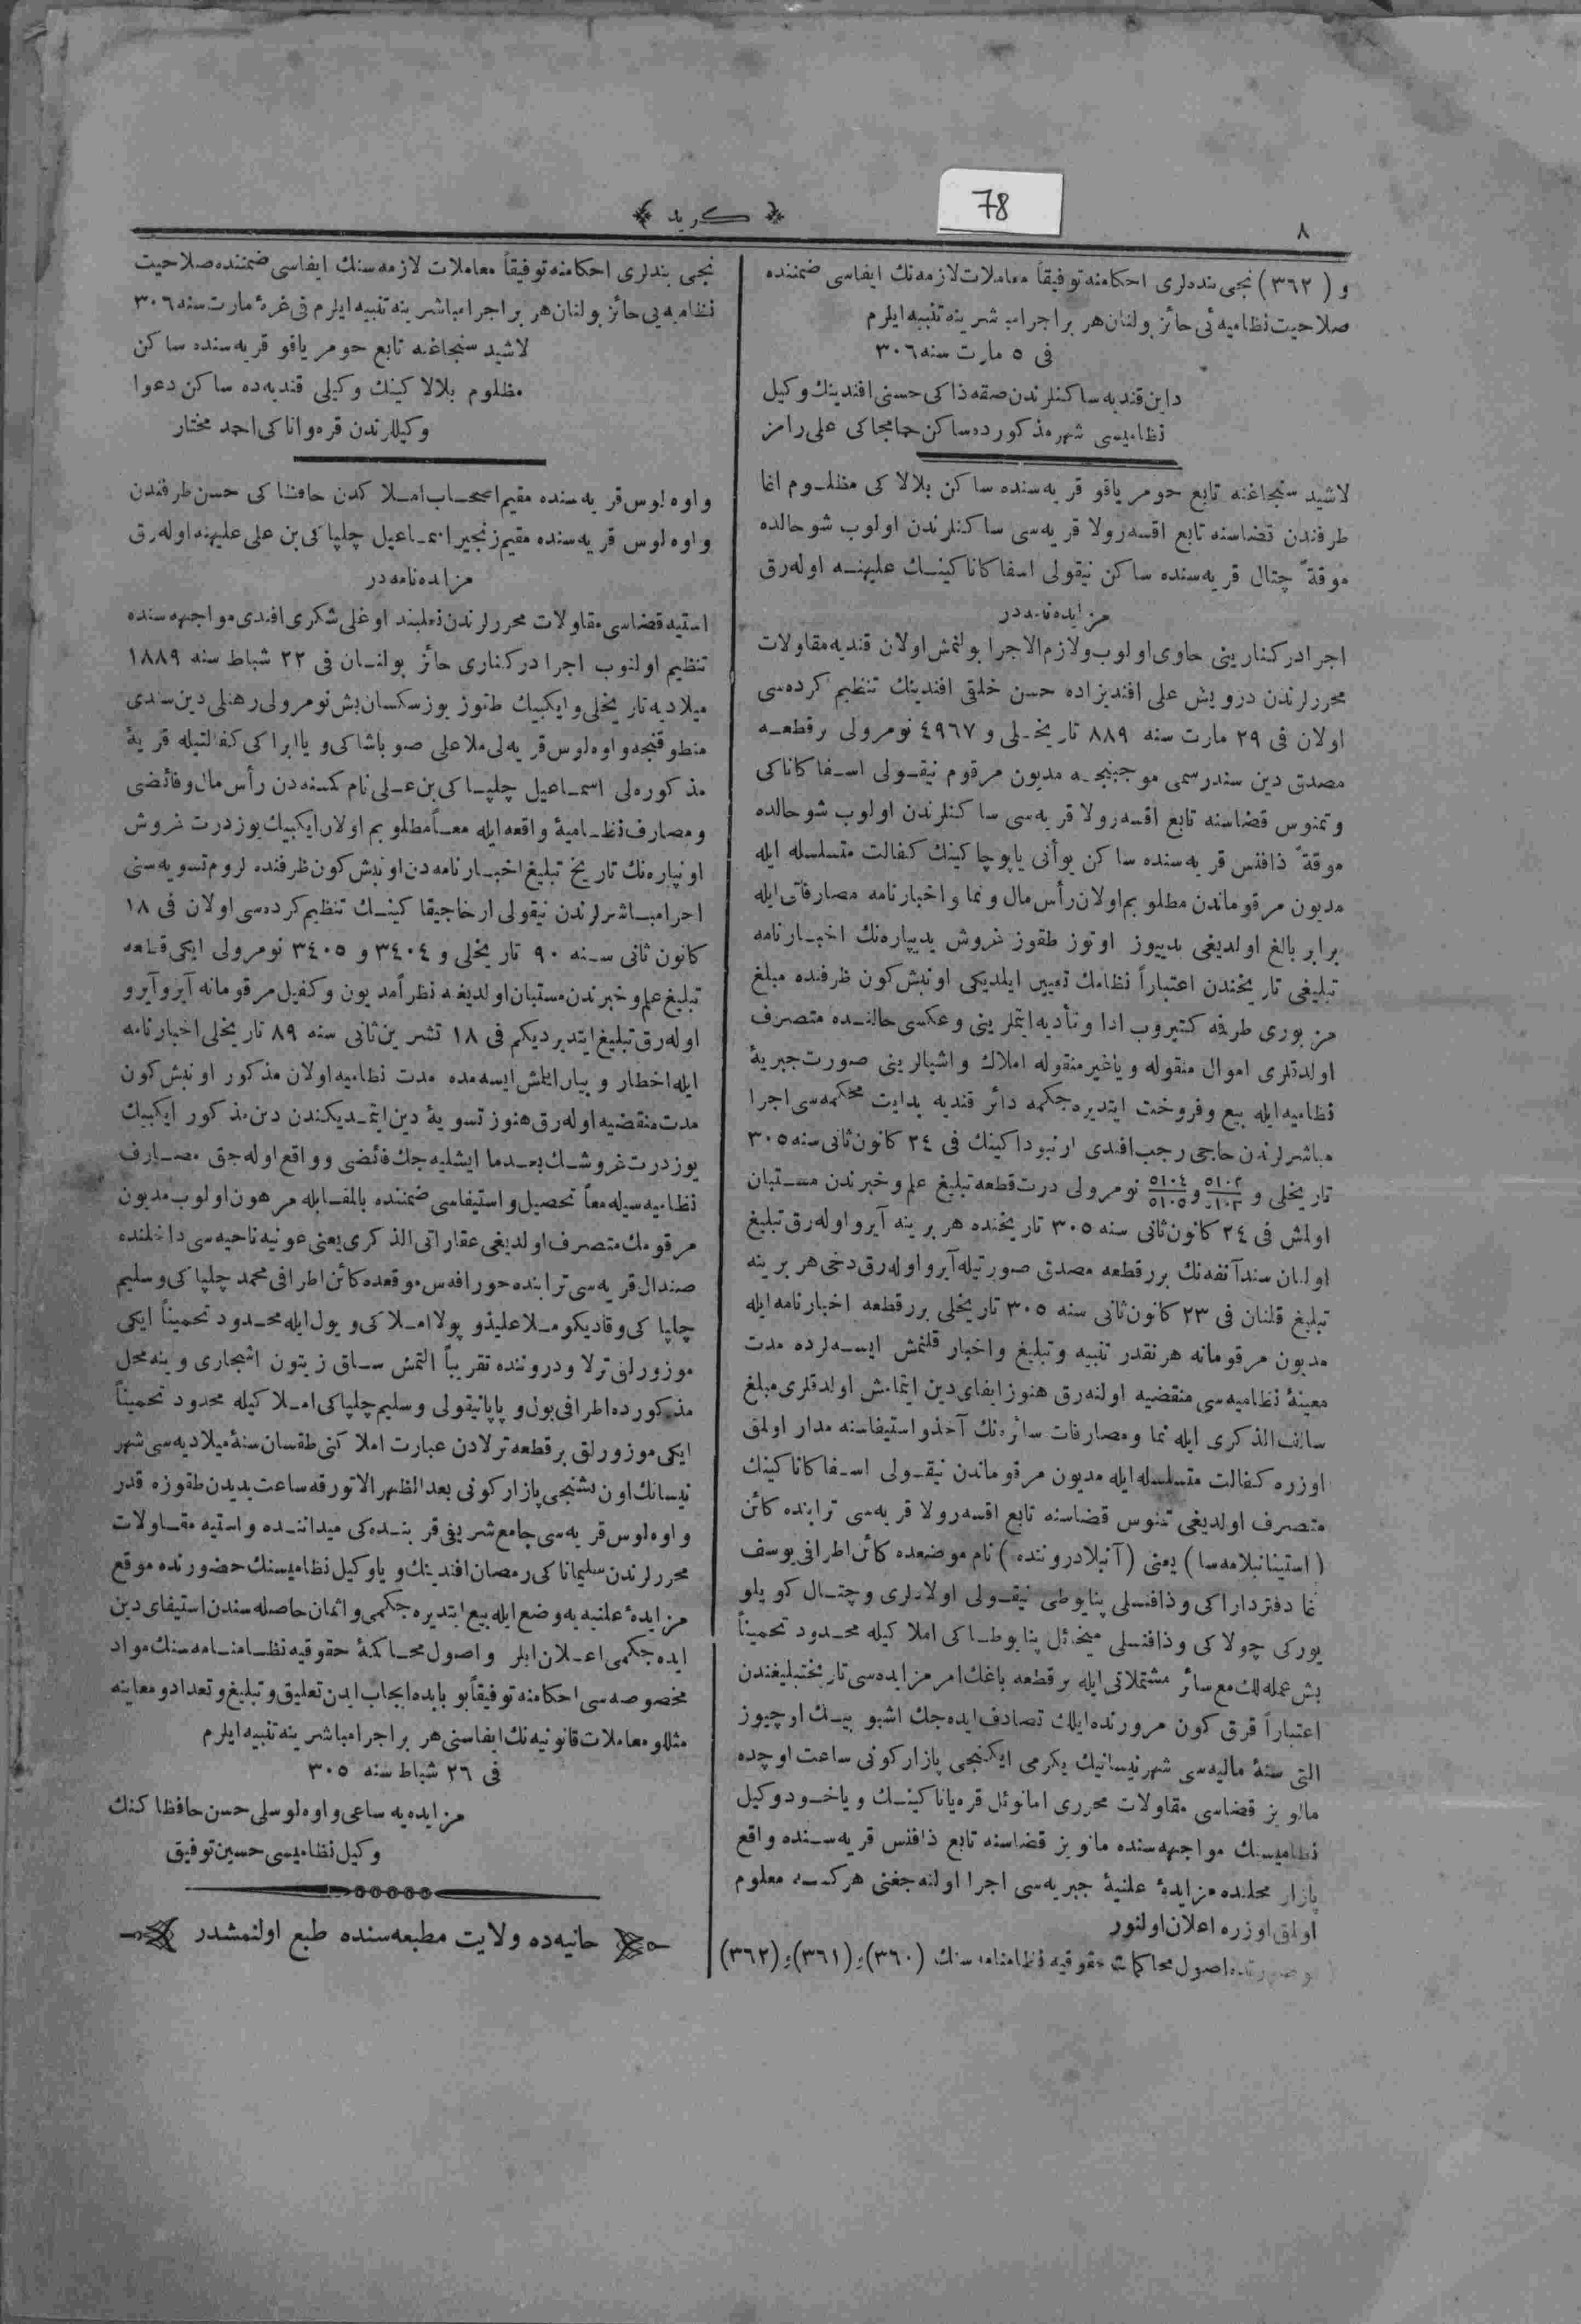 ٨
78
كريد
و (٣٦٢) نجى بندلرى احكامنه توفيقاً معاملات لازمه نك ايفاسى ضمننده
صلاحيت نظاميه ئى حائز بولنان هر بر اجرا مباشرينه تنبيه ايلرم
فى ٥ مارت سنه ٣٠٦
داين قنديه ساكنلرندن صقه ذاكى حسنى افندينك وكيل
نظاميسى شهر مذكورده ساكن حمامجاكى على رامز
لاشيد سنجاغنه تابع حومرياقو قريه سنده ساكن بلالاكى مظلوم اغا
طرفندن قضاسنه تابع اقسه رولا قريه سى ساكنلرندن اولوب شو حالده
موقةً چتال قريه سنده ساكن نيقولى اسفاكاناكينك عليهنه اوله رق
مزايده نامه در
اجرا دركنارينى حاوى اولوب ولازم الاجرا بولنمش اولان قنديه مقاولات
محررلرندن درويش على افنديزاده حسن خلقى افندينك تنظيم كرده سى
اولان فى ٢٩ مارت سنه ٨٨٩ تاريخلى و ٤٩٦٧ نومرولى بر قطعه
مصدق دين سند رسمى موجبنجه مديون مرقوم نيقولى اسفاكاناكى
وتمنوس قضاسنه تابع اقسه رولا قريه سى ساكنلرندن اولوب شو حالده
موقةً ذافنس قريه سنده ساكن يوآنى پاپوچاكينك كفالت متسلسله ايله
مديون مرقوماندن مطلوبم اولان رأس مال ونما واخبارنامه مصارفاتى ايله
برابر بالغ اولديغى يديوز اوتوز طقوز غروش يديپاره نك اخبارنامه
تبليغى تاريخندن اعتباراً نظامك تعيين ايلديكى اونبش كون ظرفنده مبلغ
مزبورى طرفه كتيروب ادا وتأديه ايتملرينى وعكسى حالنده متصرف
اولدقلرى اموال منقوله وياغير منقوله املاك واشيالرينى صورت جبريهٔ
نظاميه ايله بيع وفروخت ايتديره جكمه دائر قنديه بدايت محكمه سى اجرا
مباشرلرندن حاجى رجب افندى ارنبوداكينك فى ٢٤ كانون ثانى سنه ٣٠٥
تاريخلى و ٥١٠٢ ٥١٠٣ و ٥١٠٤ ٥١٠٥ نومرولى درت قطعه تبليغ علم وخبرندن مستبان
اولمش فى ٢٤ كانون ثانى سنه ٣٠٥ تاريخنده هر برينه آيرو اوله رق تبليغ
اولنان سند آنفه نك برر قطعه مصدق صورتيله آيرو اوله رق دخى هر برينه
تبليغ قلنان فى ٢٣ كانون ثانى سنه ٣٠٥ تاريخلى برر قطعه اخبارنامه ايله
مديون مرقومانه هرنقدر تنبيه وتبليغ واخبار قلنمش ايسه لرده مدت
معينهٔ نظاميه سى منقضيه اولنه رق هنوز ايفاى دين ايتمامش اولدقلرى مبلغ
سالف الذكرى ايله نما ومصارفات سائره نك آخذ واستيفاسنه مدار اولمق
اوزره كفالت متسلسله ايله مديون مرقوماندن نيقولى اسفاكاناكينك
متصرف اولديغى تمنوس قضاسنه تابع اقسه رولا قريه سى ترابنده كائن
(استينانبلامه سا) يعنى (آنبلادروننده) نام موضعده كائن اطرافى يوسف
غا دفترداراكى وذافنسلى پنايوطى نيقولى اولادلرى وچتال كويلو
يوركى چولاكى وذافنسلى ميخائل پنايوطاكى املاكيله محدود تخميناً
بش عمله لك مع سائر مشتملاتى ايله بر قطعه باغك امر مزايده سى تاريختبليغندن
اعتباراً قرق كون مرورنده ايلك تصادف ايده جك اشبو بيك اوچيوز
التى سنهٔ ماليه سى شهر نيسانينك يكرمى ايكنجى پازار كونى ساعت اوچده
مالويز قضاسى مقاولات محررى امانوئل قره ياناكينك وياخود وكيل
نظاميسنك مواجهه سنده مالويز قضاسنه تابع ذافنس قريه سنده واقع
پازار محلنده مزايدهٔ علنيهٔ جبريه سى اجرا اولنه جغنى هركسه معلوم
اولمق اوزره اعلان اولنور
اصول محاكمات حقوقيه نظامنامه سنك (٣٦٠) و (٣٦١) و (٣٦٢)
نجى بندلرى احكامنه توفيقاً معاملات لازمه سنك ايفاسى ضمننده صلاحيت
نظاميه يى حائز بولنان هر بر اجرا مباشرينه تنبيه ايلرم فى غرهٔ مارت سنه ٣٠٦
لاشيد سنجاغنه تابع حومرياقو قريه سنده ساكن
مظلوم بلالاكينك وكيلى قنديه ده ساكن دعوا
وكيللرندن قره واناكى احمد مختار
واوه لوس قريه سنده مقيم اصحاب املاكدن حافظاكى حسن طرفندن
واوه لوس قريه سنده مقيم زنجير اسماعيل چلپاكى بن على عليهنه اوله رق
مزايده نامه در
استيه قضاسى مقاولات محررلرندن نعلبند اوغلى شكرى افندى مواجهه سنده
تنظيم اولنوب اجرا دركنارى حائز بولنان فى ٢٢ شباط سنه ١٨٨٩
ميلاديه تاريخلى وايكيبيك طقوز يوز سكسان بش نومرولى رهنلى دين سندى
منطوقنجه واوه لوس قريه لى ملا على صوباشاكى ويا ابراكى كفالتيله قريهٔ
مذكوره لى اسماعيل چلپاكى بن على نام كمسنه دن رأس مال وفائضى
ومصارف نظاميهٔ واقعه ايله معاً مطلوبم اولان ايكيبيك يوز درت غروش
اونپاره نك تاريخ تبليغ اخبارنامه دن اونبش كون ظرفنده لزوم تسويه سنى
اجرا مباشرلرندن نيقولى ارخاجيقاكينك تنظيم كرده سى اولان فى ١٨
كانون ثانى سنه ٩٠ تاريخلى و ٣٤٠٤ و ٣٤٠٥ نومرولى ايكى قطعه
تبليغ علم وخبرندن مستبان اولديغنه نظراً مديون وكفيل مرقومانه آيرو آيرو
اوله رق تبليغ ايتديرديكم فى ١٨ تشرين ثانى سنه ٨٩ تاريخلى اخبارنامه
ايله اخطار وبيان ايلمش ايسه مده مدت نظاميه اولان مذكور اونبش كون
مدت منقضيه اوله رق هنوز تسويهٔ دين ايتمديكندن دين مذكور ايكيبيك
يوز درت غروشك بعدما ايشليه جك فائضى وواقع اوله جق مصارف
نظاميه سيله معاً تحصيل واستيفاسى ضمننده بالمقابله مرهون اولوب مديون
مرقومك متصرف اولديغى عقاراتى الذكرى يعنى غونيه ناحيه سى داخلنده
صندال قريه سى ترابنده حورافه س موقعده كائن اطرافى محمد چلپاكى وسليم
چلپاكى وقاديكو ملا عليذو پولا املاكى ويول ايله محدود تخميناً ايكى
موزورلق ترلا ودروننده تقريباً التمش ساق زيتون اشجارى وينه محل
مذكورده اطرافى يول و پاپانيقولى وسليم چلپاكى املاكيله محدود تخميناً
ايكى موزورلق بر قطعه ترلادن عبارت املاكنى طقسان سنهٔ ميلاديه سى شهر
نيسانك اون بشنجى پازار كونى بعد الظهر الاتورقه ساعت يديدن طقوزه قدر
واوه لوس قريه سى جامع شريفى قربنده كى ميداننده واستيه مقاولات
محررلرندن سليماناكى رمضان افندينك وياوكيل نظاميسنك حضورنده موقع
مزايدهٔ علنيه يه وضع ايله بيع ايتديره جكمى واثمان حاصله سندن استيفاى دين
ايده جكمى اعلان ايلر واصول محاكمهٔ حقوقيه نظامنامه سنك مواد
مخصوصه سى احكامنه توفيقاً بو بابده ايجاب ايدن تعليق وتبليغ وتعداد ومعاينه
مثللو معاملات قانونيه نك ايفاسنى هر بر اجرا مباشرينه تنبيه ايلرم
فى ٢٦ شباط سنه ٣٠٥
مزايده يه ساعى واوه لوسلى حسن حافظاكينك
وكيل نظاميسى حسين توفيق
حانيه ده ولايت مطبعه سنده طبع اولنمشدر